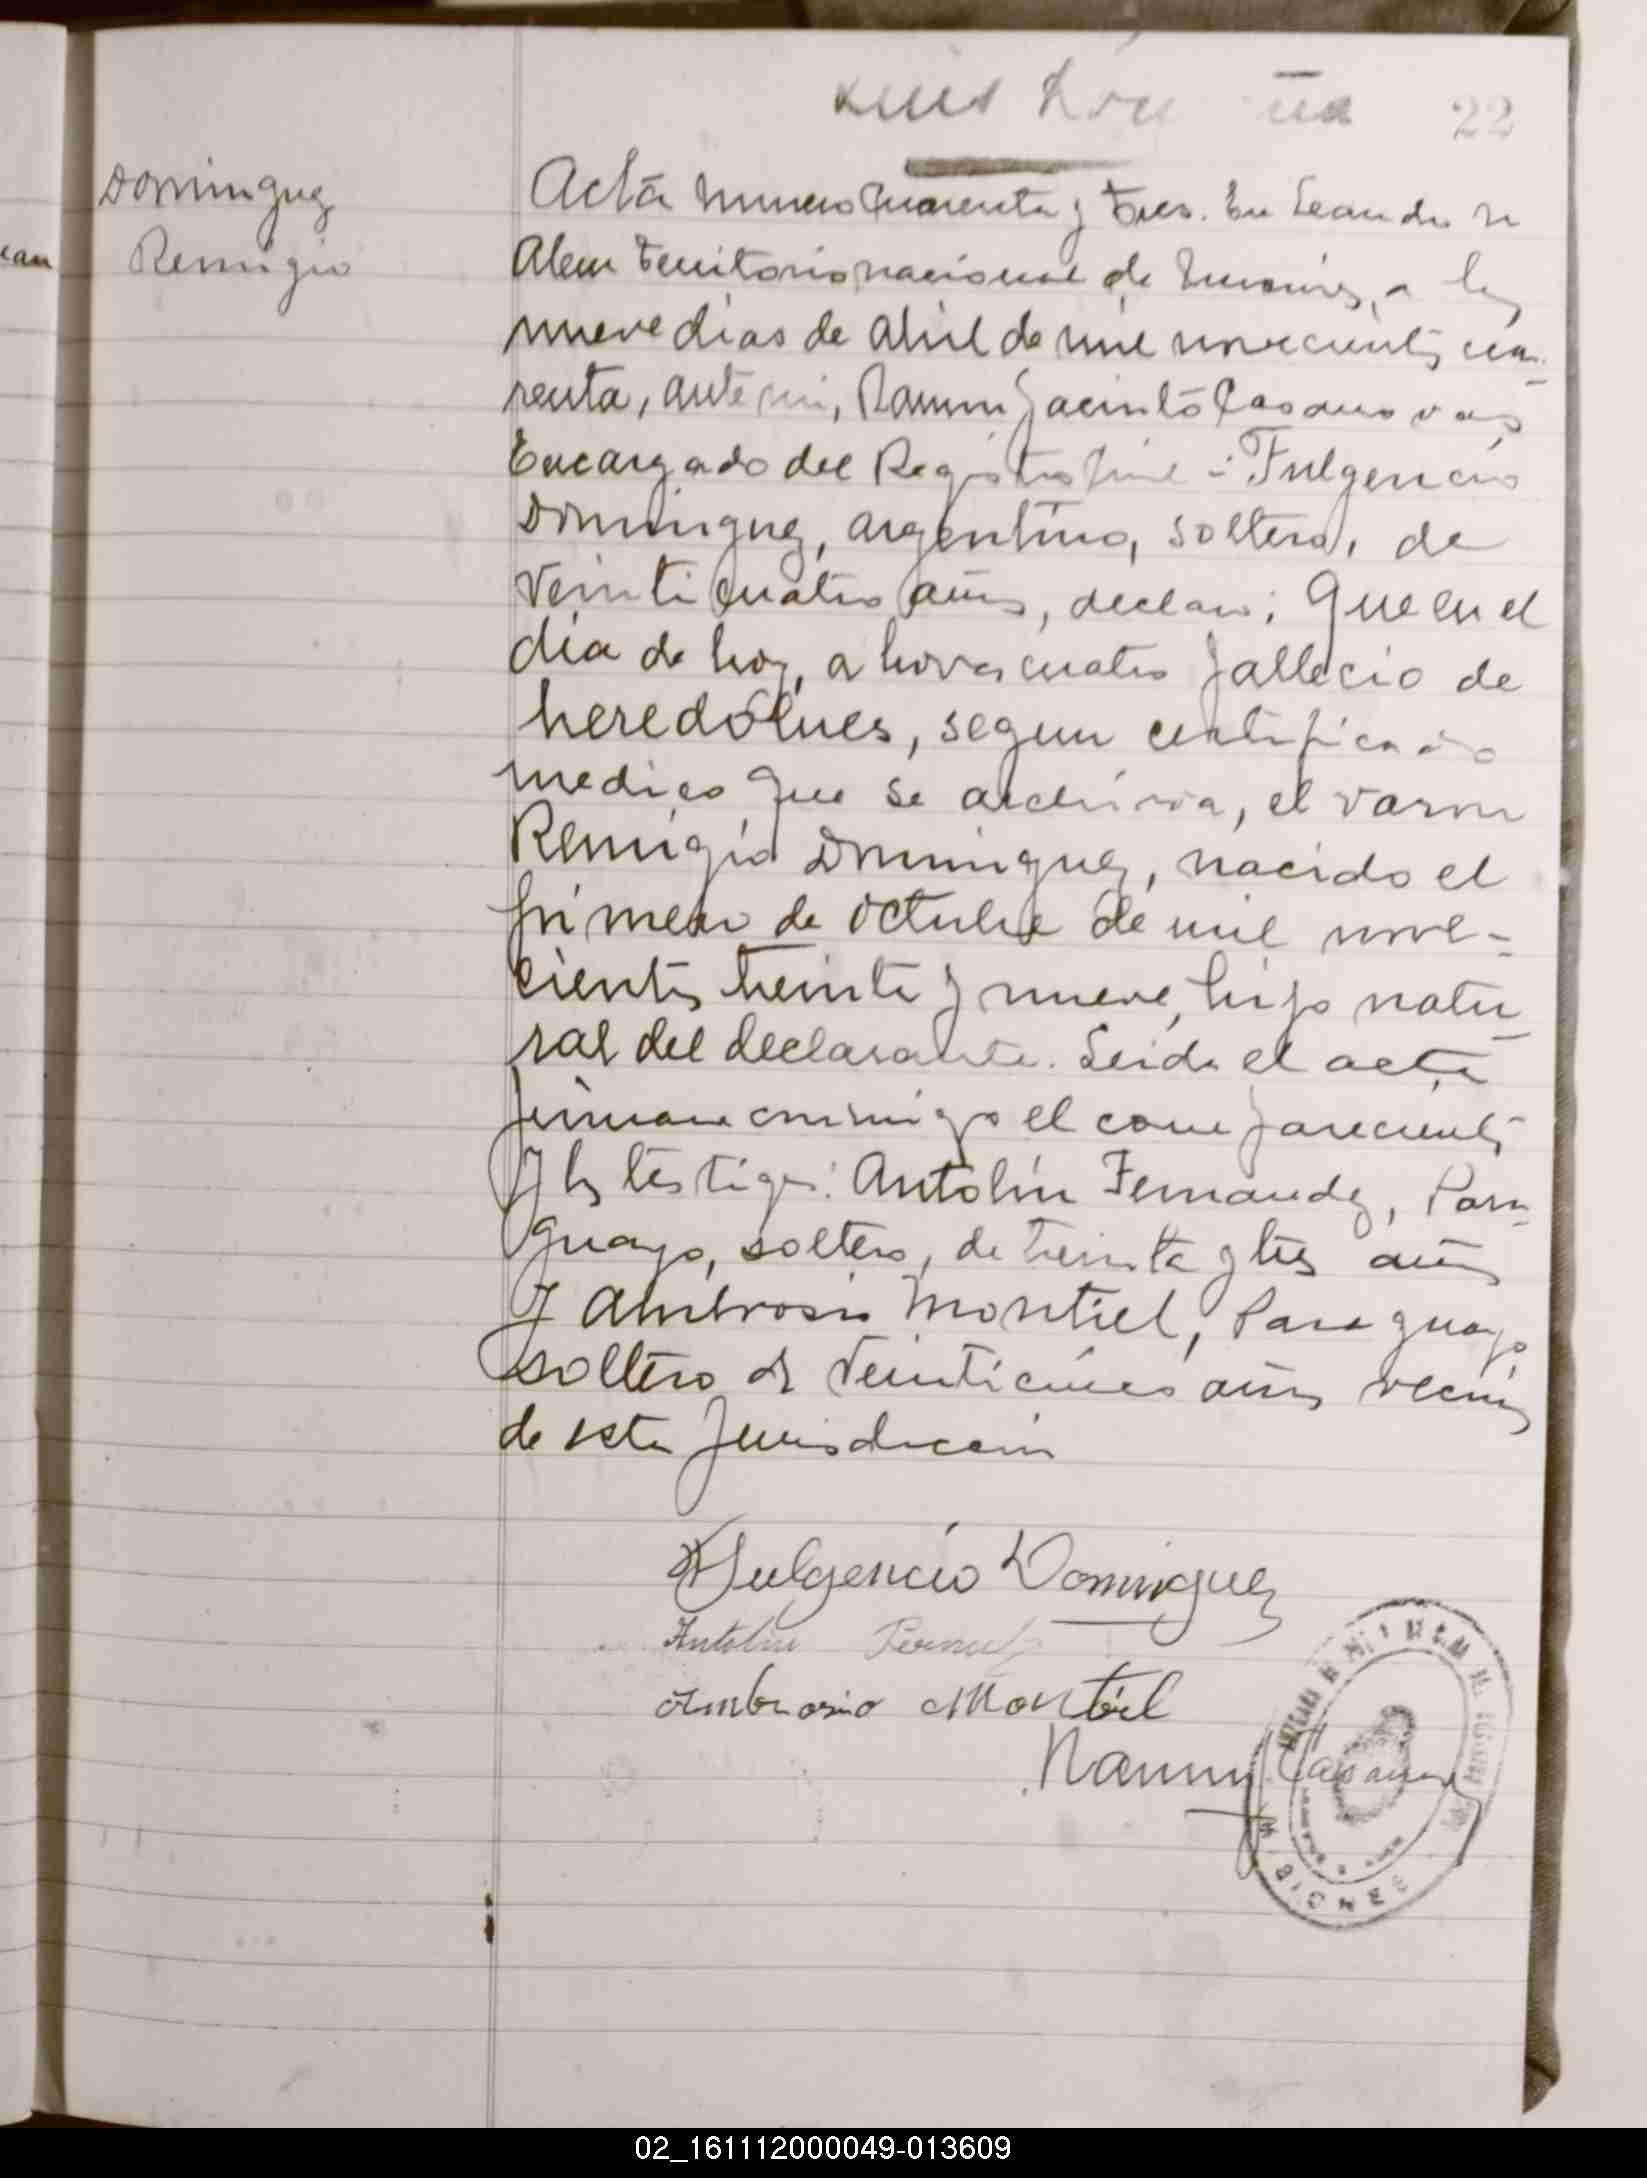 22
Dominguez
Remigio
Acta numero Cuarenta y tres. En Leandro N
Alem territorio nacional de Misiones, a los
nueve dias de abril de mil novecientos cua-
renta, ante mi, Ramon Jacinto Casanovas
Encargado del Registro Civil - Fulgencio
Dominguez, argentino, soltero, de
veinticuatro años, declaró: Que en el
dia de hoy, a horas cuatro falleció de
heredólues, segun certificado
medico que se archiva, el varon
Remigio Dominguez, nacido el
primero de octubre de mil nove-
cientos treinta y nueve, hijo natu-
ral del declarante. Leida el acta
firman conmigo el compareciente
y los testigos: Antolin Fernandez, Para-
guayo, soltero, de treinta y tres años
y Ambrosio Montiel, Paraguayo,
soltero de veinticinco años vecinos
de esta jurisdiccion
Fulgencio Dominguez
Antolin
Ambrosio Montiel
Ramon J Casanova
02_161112000049-013609